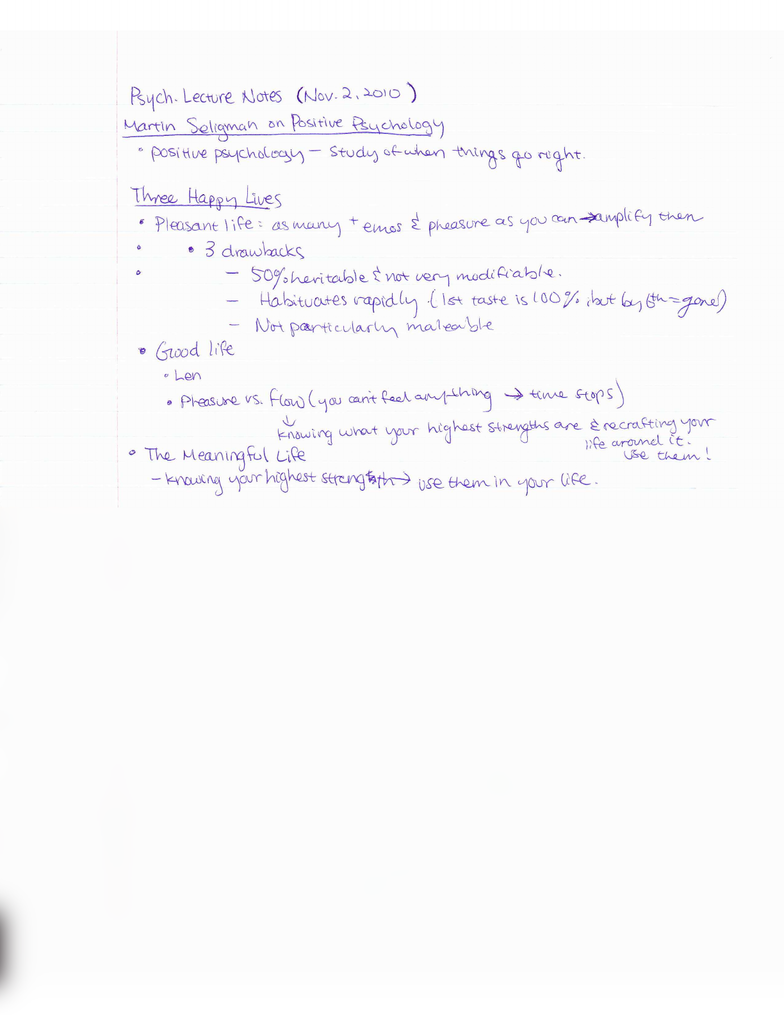 Psych. Lecture Notes (Nov. 2, 2010)
Martin Seligman on Positive Psychology
• positive psychology – Study of when things go right.
Three Happy Lives
• Pleasant life: as many + emos & pheasure as you can → amplify then
• • 3 drawbacks
• – 50% heritable & not very modifiable.
– Habituates rapidly. (1st taste is 100%, but by 6th = gone)
– Not particularly maleable
• Good life
• Len
• Pheasure vs. flow (you can't feel anything → time stops)
↓
knowing what your highest strengths are & recrafting your
life around it.
use them!
• The Meaningful Life
– knowing your highest strength → use them in your life.